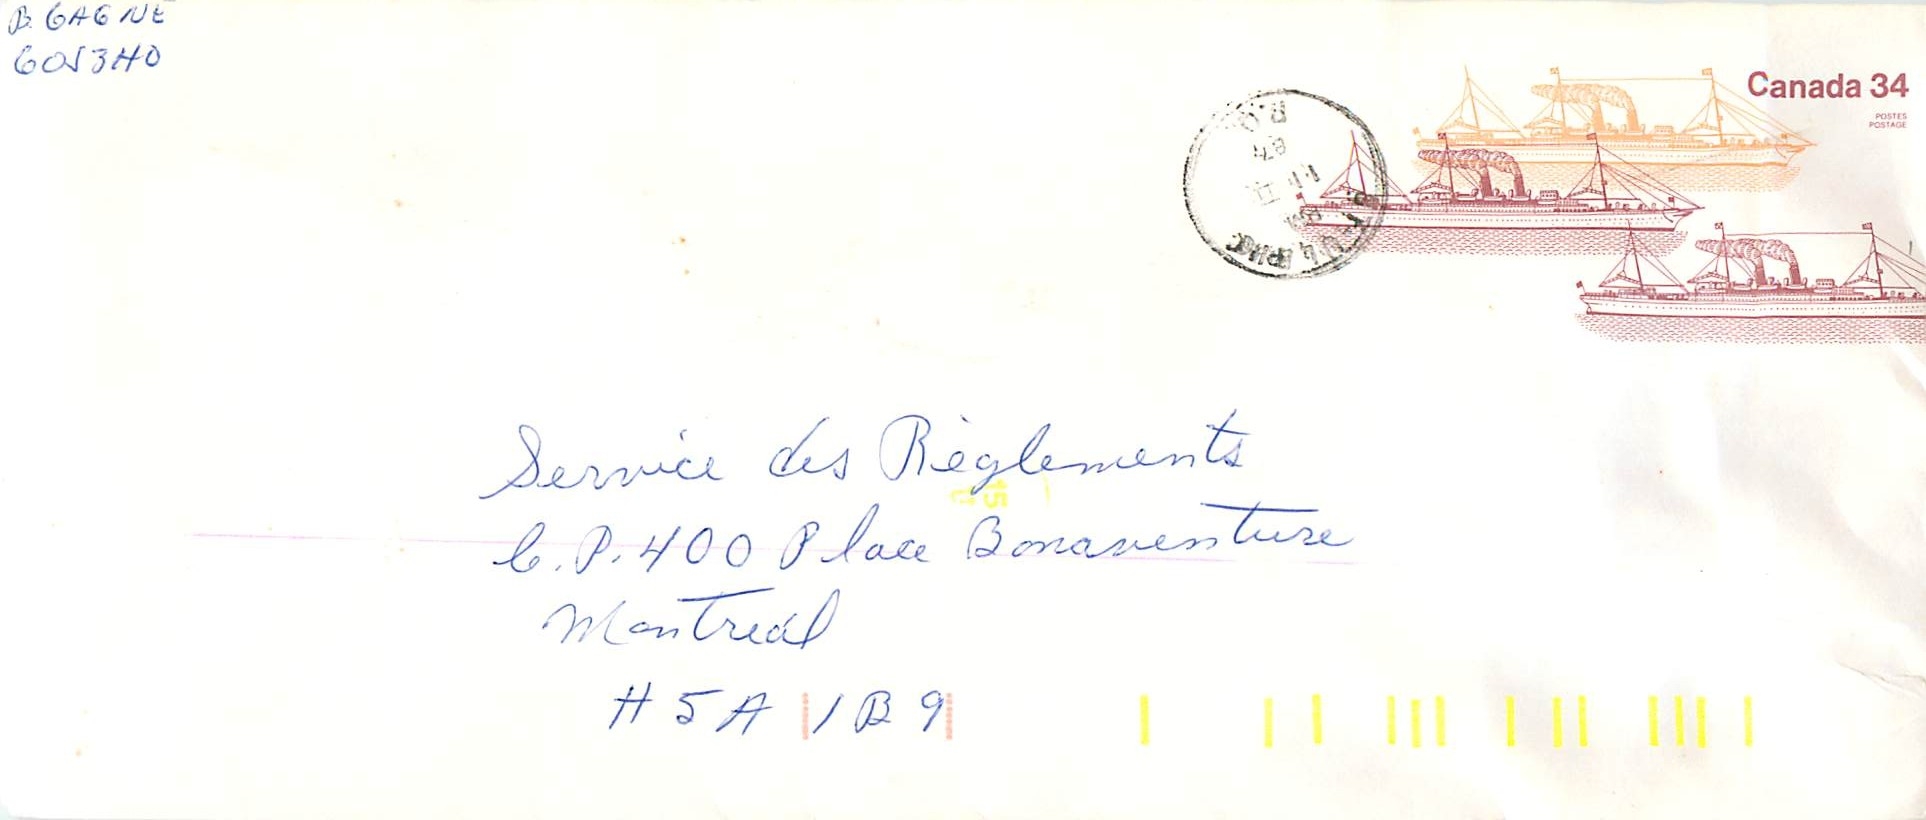 B. GAGNE
G0S3H0
Canada 34
POSTES
POSTAGE
87
Service des Règlements
C.P. 400 Place Bonaventure
Montreal
H5A 1B9
15